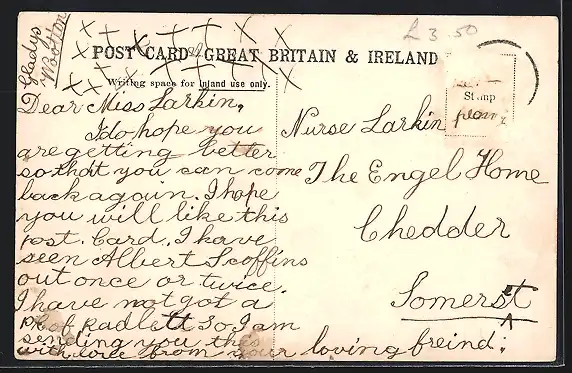 Gladys
Wootton
£3.50
POST CARD GREAT BRITAIN & IRELAND
Writing space for inland use only.
Stamp
Dear Miss Larkin,
I do hope you
are getting better
so that you can come
back again. I hope
you will like this
post. Card, I have
seen Albert Scoffins
out once or twice.
I have not got a
pc of Radlett So I am
sending you this
with love from your loving freind:
Nurse Larkin
The Engel Home
Chedder
Somerset